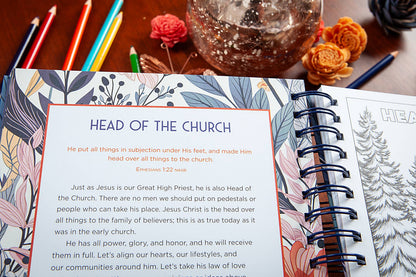 HEAD OF THE CHURCH
He put all things in subjection under His feet, and made Him
head over all things to the church.
EPHESIANS 1:22 NASB
Just as Jesus is our Great High Priest, he is also Head of
the Church. There are no men we should put on pedestals or
people who can take his place. Jesus Christ is the head over
all things to the family of believers; this is as true today as it
was in the early church.
He has all power, glory, and honor, and he will receive
them in full. Let's align our hearts, our lifestyles, and
our communities around him. Let's take his law of love
HEA